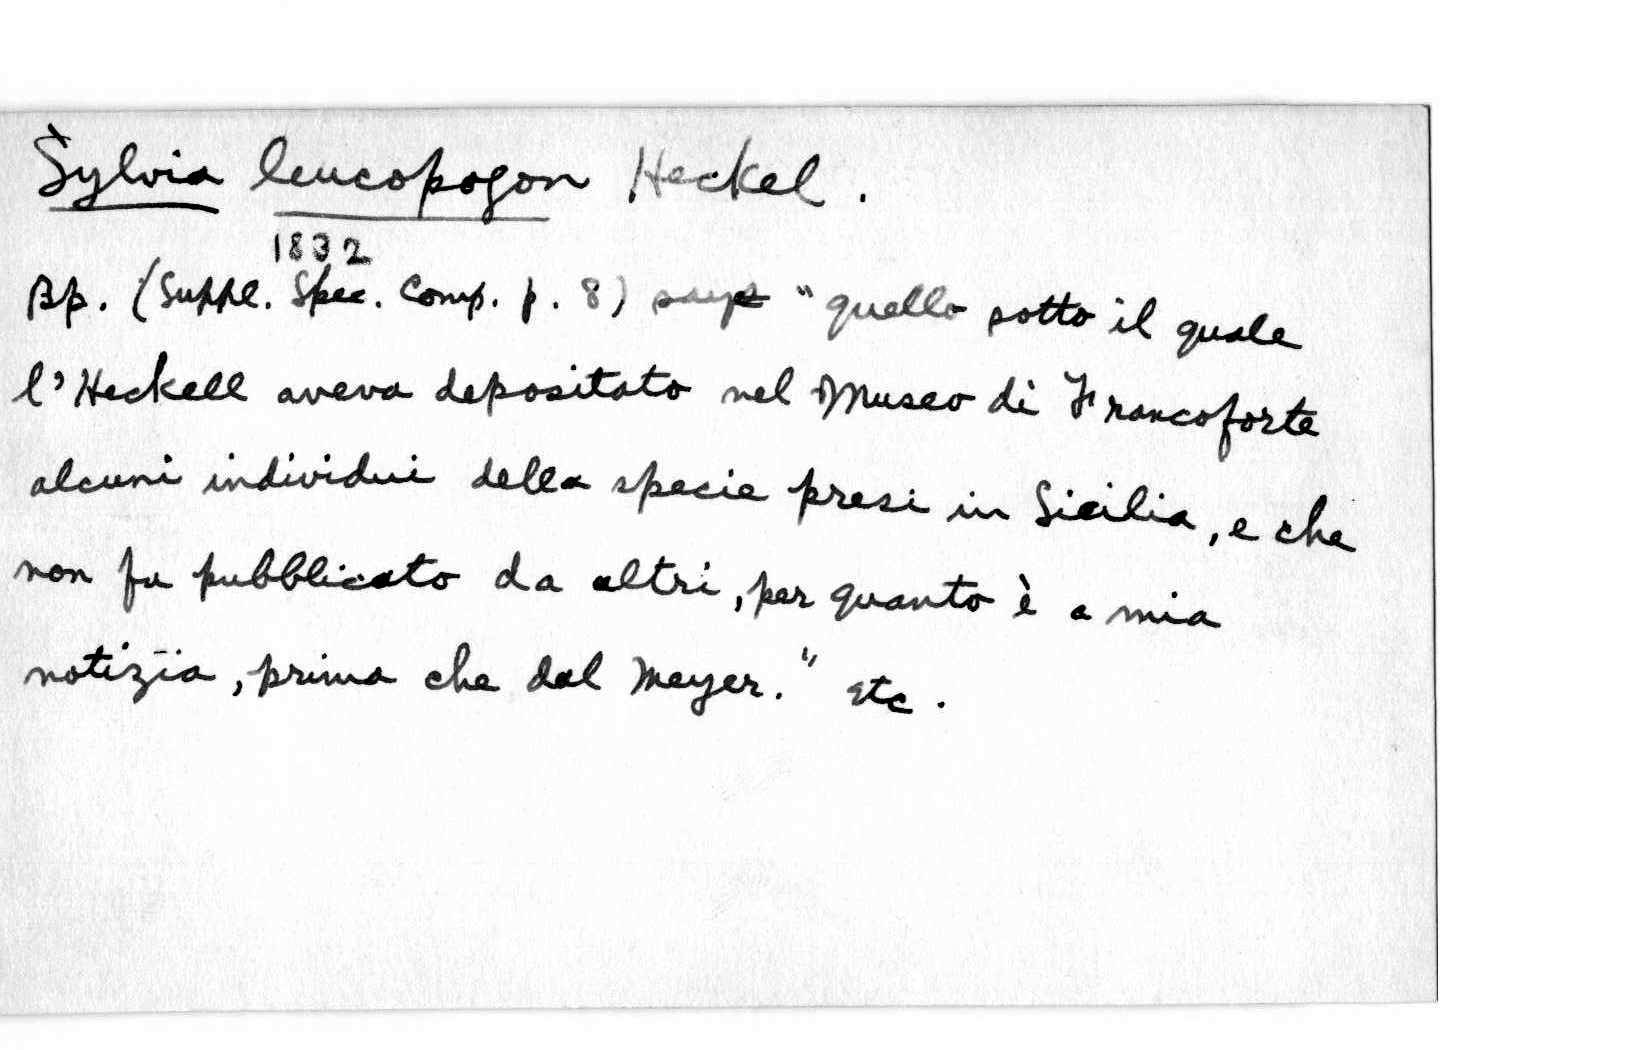 Sylvia leucopogon Heckel.
1832
Bp. (Suppl. Spec. Comp. p. 8) says "quello sotto il quale
l'Heckell aveva depositato nel Museo di Francoforte
alcuni individui della specie presi in Sicilia, e che
non fu pubblicato da altri, per quanto è a mia
notizia, prima che dal Meyer." etc.